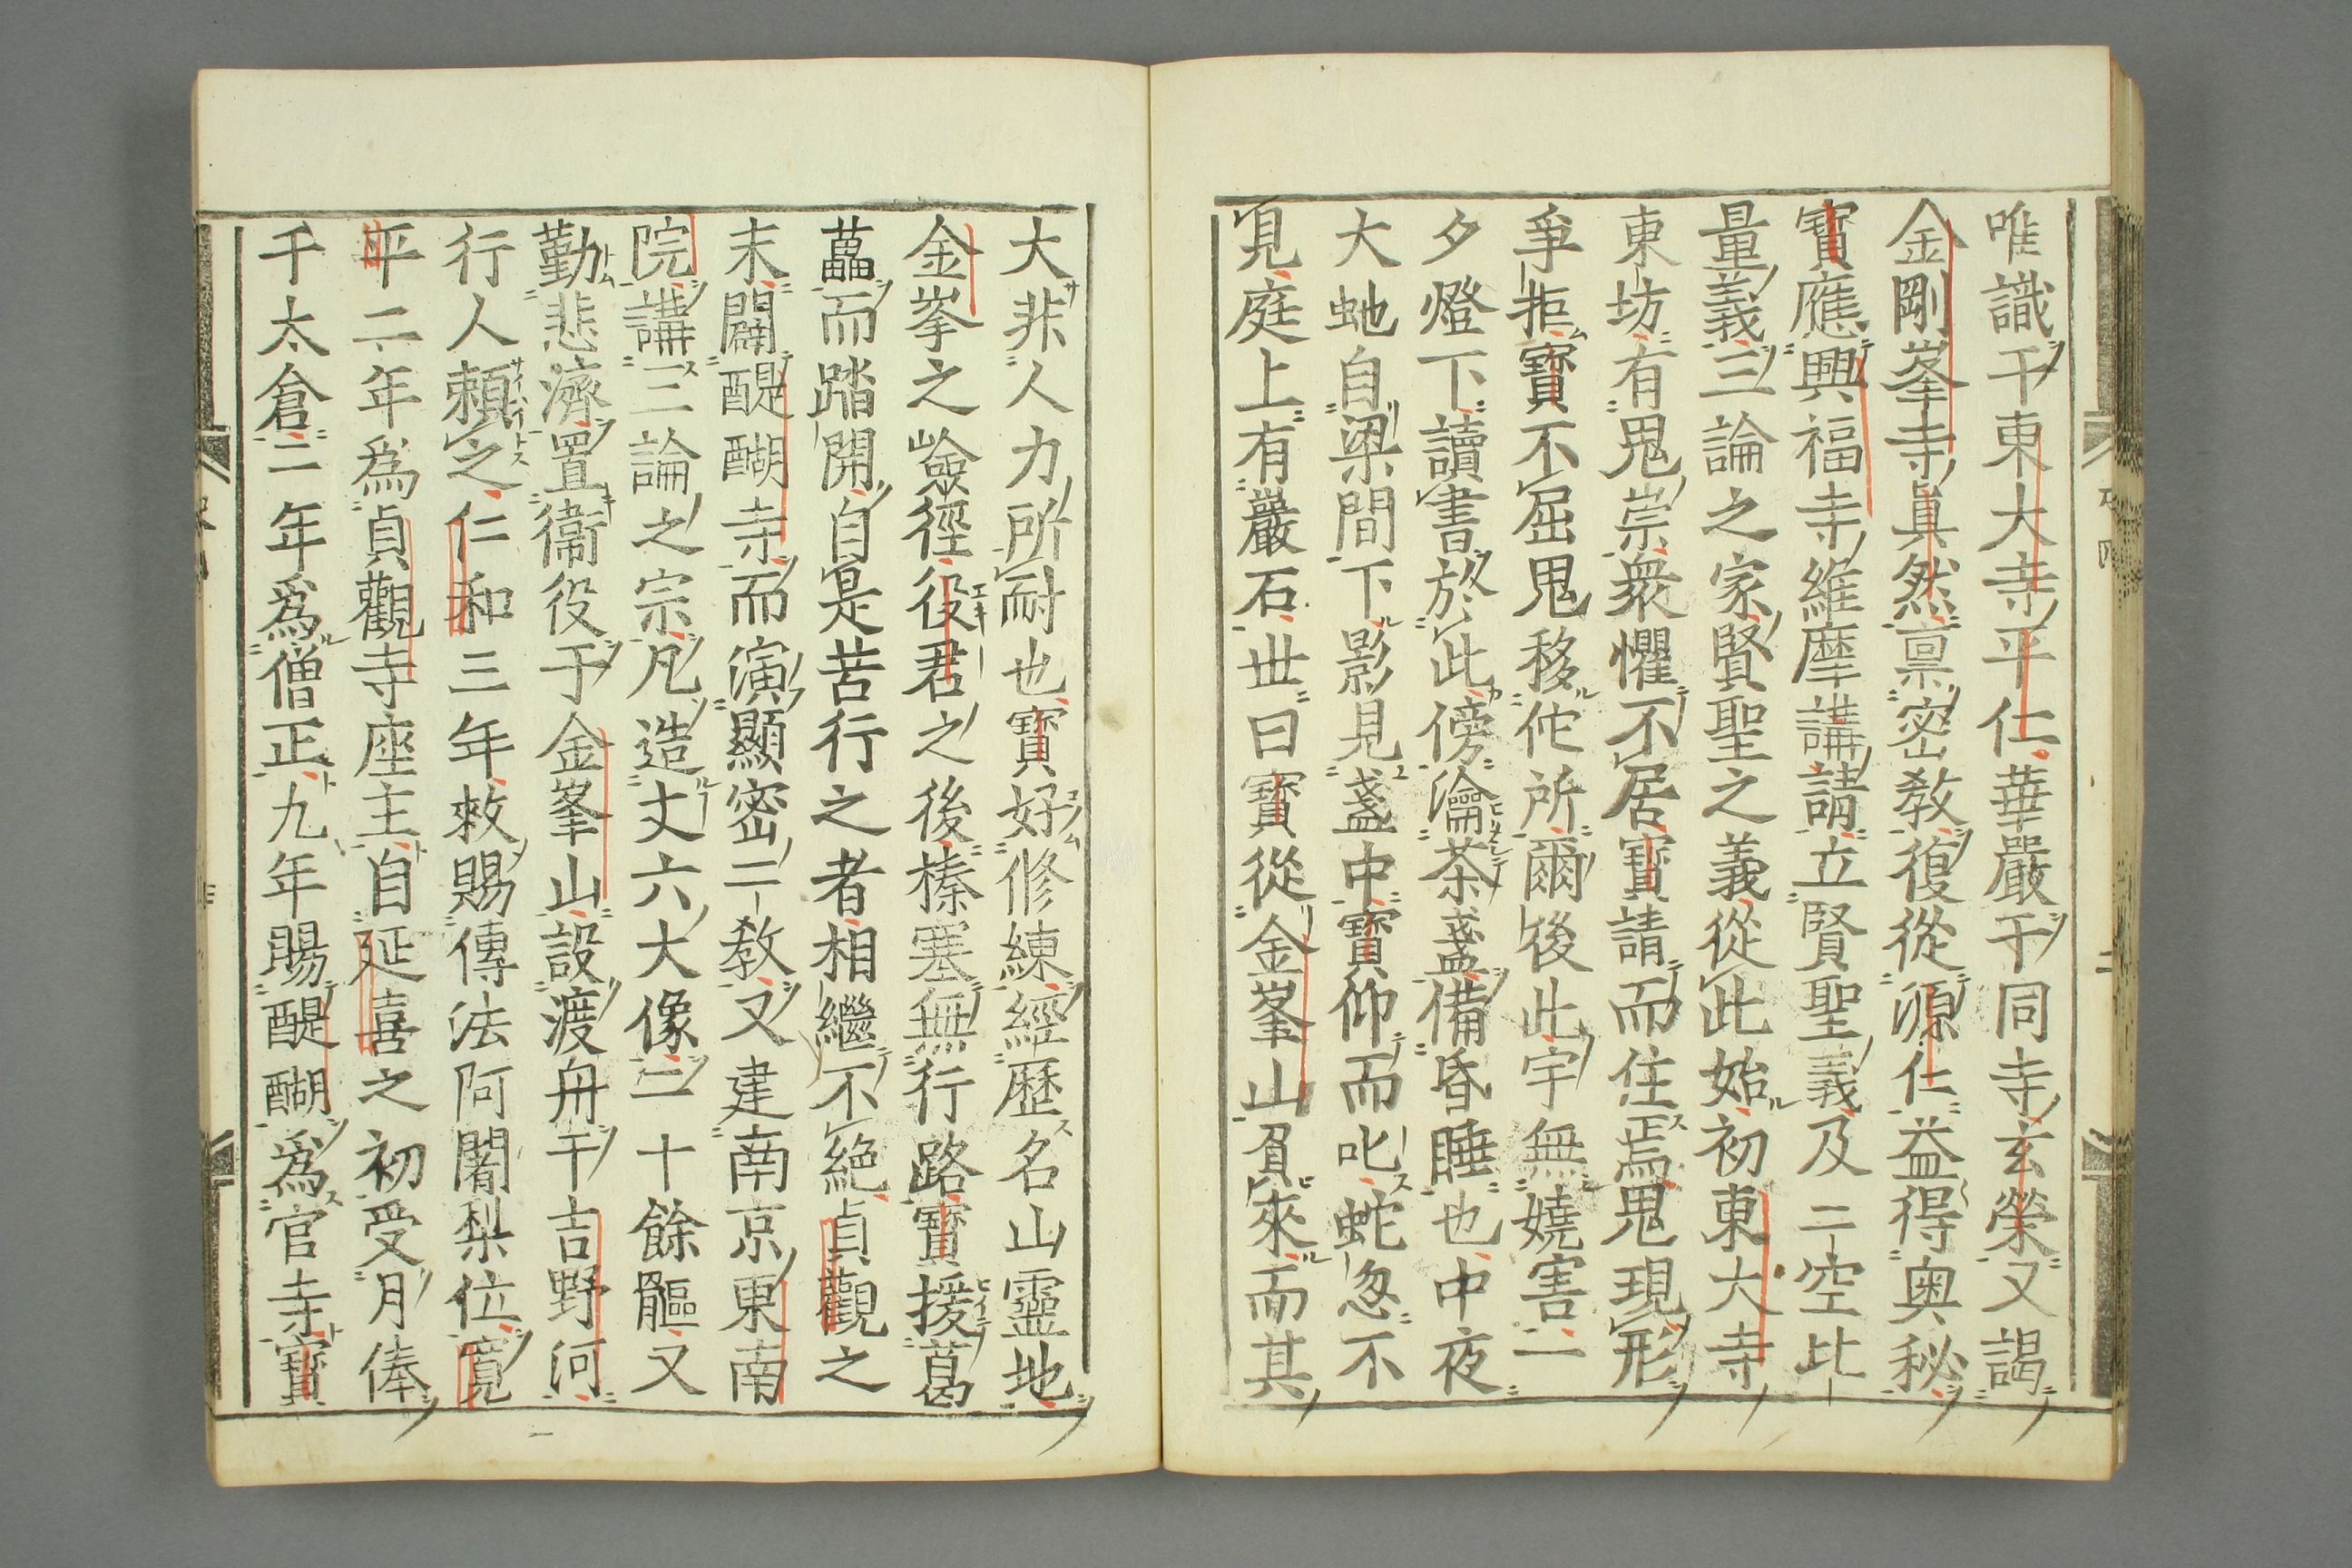 唯識于東大寺平仁華嚴于同寺玄榮又謁
金剛峯寺眞然禀密教復從源仁益得奥秘
寳應興福寺維摩講請立賢聖義及二空比
量義三論之家賢聖之義從此始初東大寺
東坊有鬼祟衆懼不居寳請而住焉鬼現形
爭拒寳不屈鬼移佗所爾後此宇無嬈害一
夕燈下讀書於此傍瀹茶盞備昏睡也中夜
大虵自梁間下影見盞中寳仰而叱蛇忽不
見庭上有巖石世曰寳從金峯山負來而其
大非人力所耐也寳好修練經歷名山靈地
金峯之嶮徑役君之後榛塞無行路寳援葛
藟而踏開自是苦行之者相繼不絶貞觀之
末闢醍醐寺而演顯密二教又建南京東南
院講三論之宗凡造丈六大像二十餘軀又
勤悲濟置衞役于金峯山設渡舟于吉野河
行人頼之仁和三年敕賜傳法阿闍梨位寛
平二年爲貞觀寺座主自延喜之初受月俸
千太倉二年爲僧正九年賜醍醐爲官寺寳